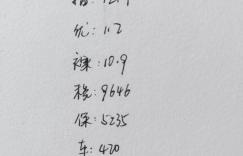 优:1.2
稞:10.9
税:9646
保:5235
车:420